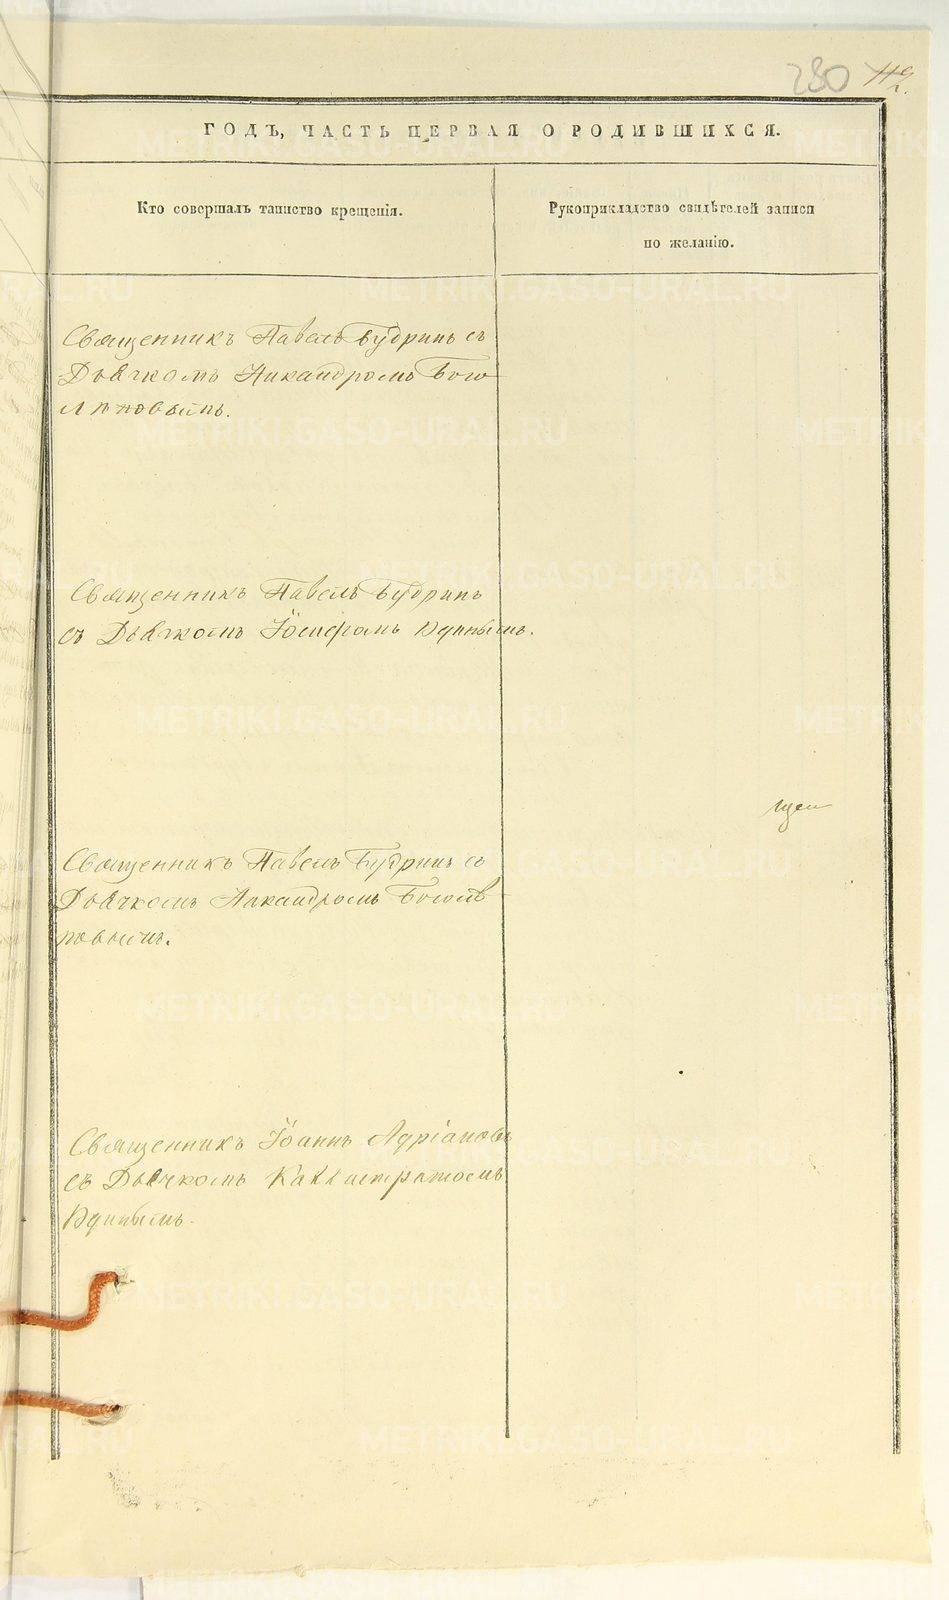 280
ГОДЪ, ЧАСТЬ ПЕРВАЯ О РОДИВШИХСЯ.
Кто совершалъ таинство крещенія.
Рукоприкладство свидѣтелей записи
по желанію.
Священникъ Павелъ Будринъ съ
Дьячкомъ Никандромъ Бого
лѣповымъ.
Священникъ Павелъ Будринъ
съ Дьячкомъ Іосифомъ
Священникъ Павелъ Будринъ съ
Дьячкомъ Никандромъ Боголѣ
повымъ.
Священникъ Іоаннъ Адріановъ
съ Дьячкомъ Каллистратомъ
METRIKI.GASO-URAL.RU